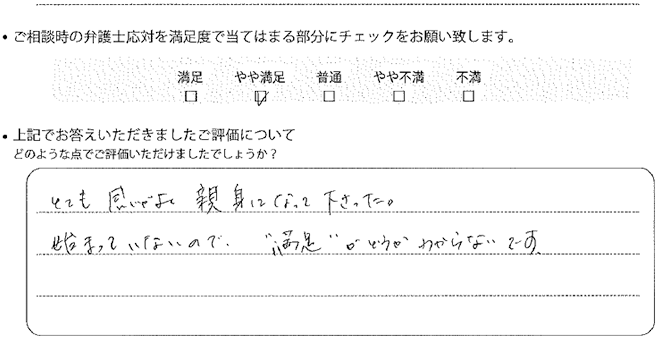 ・ご相談時の弁護士応対を満足度で当てはまる部分にチェックをお願い致します。
満足 やや満足 普通 やや不満 不満
□ ☑ □ □ □
・上記でお答えいただきましたご評価について
どのような点でご評価いただけましたでしょうか?
とても感じがよく親身になって下さった。
始まっていないので、"満足"かどうかわからないです。